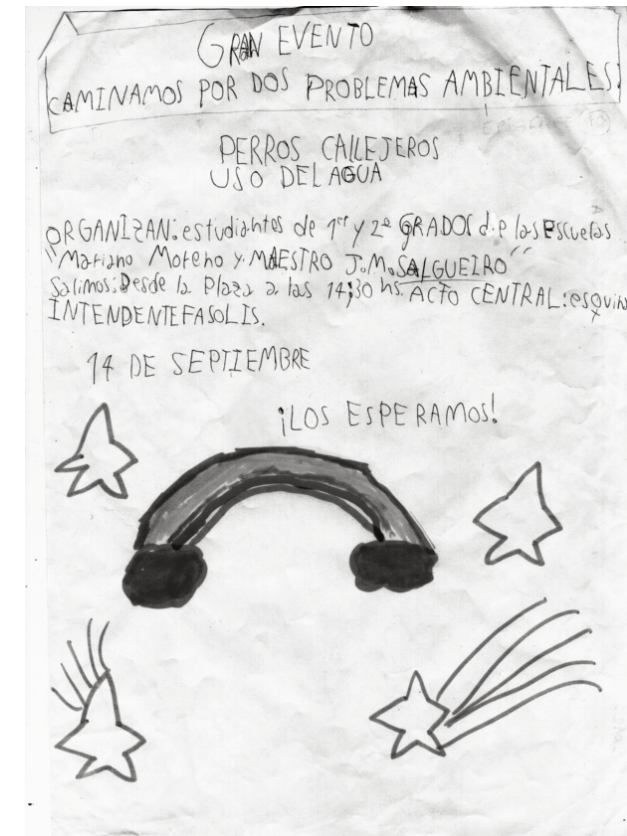 GRAN EVENTO
CAMINAMOS POR DOS PROBLEMAS AMBIENTALES:
PERROS CALLEJEROS
USO DEL AGUA
ORGANIZAN: estudiantes de 1er y 2º GRADOS de las Escuelas
"Mariano Moreno y MAESTRO J.M. SALGUEIRO"
Salimos: Desde la Plaza a las 14:30 hs. ACTO CENTRAL: esquina
INTENDENTE FASOLIS.
14 DE SEPTIEMBRE
¡LOS ESPERAMOS!